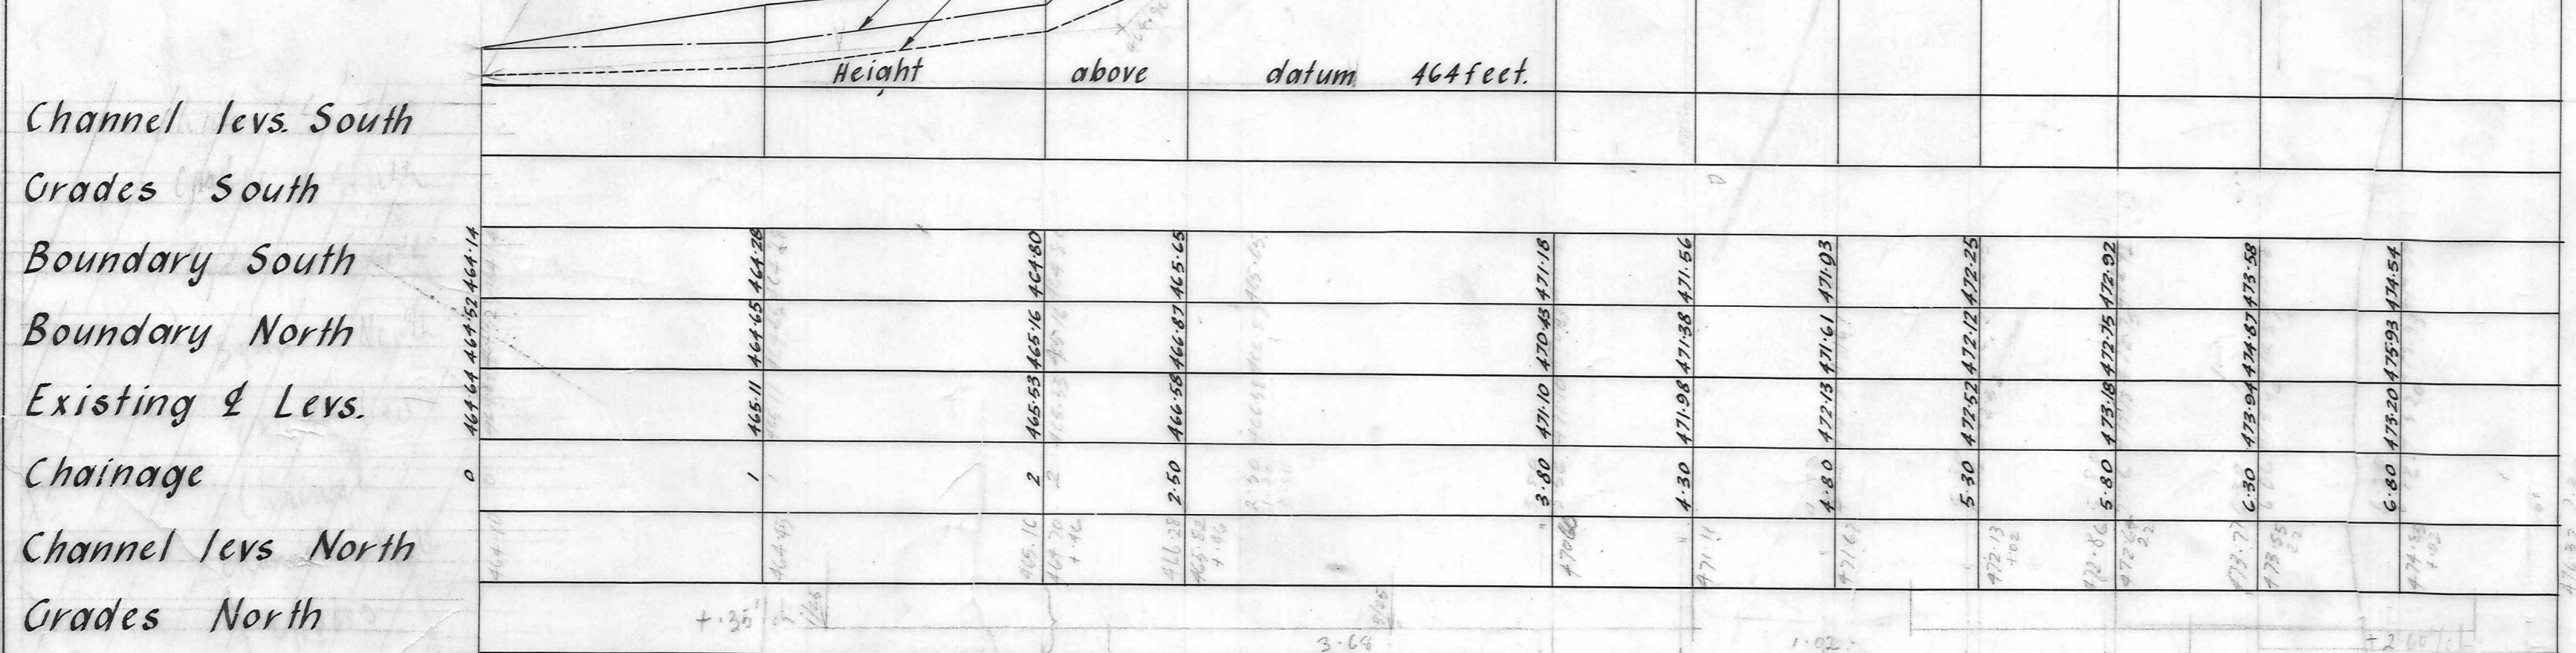 Height above datum 464 feet.
Channel levs. South
Grades South
Boundary South 464·14 464·28 464·80 465·65 471·18 471·56 471·93 472·25 472·92 473·58 474·54
Boundary North 464·52 464·65 465·16 466·87 470·43 471·38 471·61 472·12 472·75 474·87 475·93
Existing ℄ Levs. 464·64 465·11 465·53 466·58 471·10 471·98 472·13 472·52 473·18 473·94 473·20
Chainage 0 1 2 2·50 3·80 4·30 4·80 5·30 5·80 6·30 6·80
Channel levs North 464·10 464·45 465·16 464·70 +·46 466·28 465·52 470·60 471·11 471·62 472·13 +·02 472·86 473·77 473·55 22
Grades North +·35' 3·68 1·02